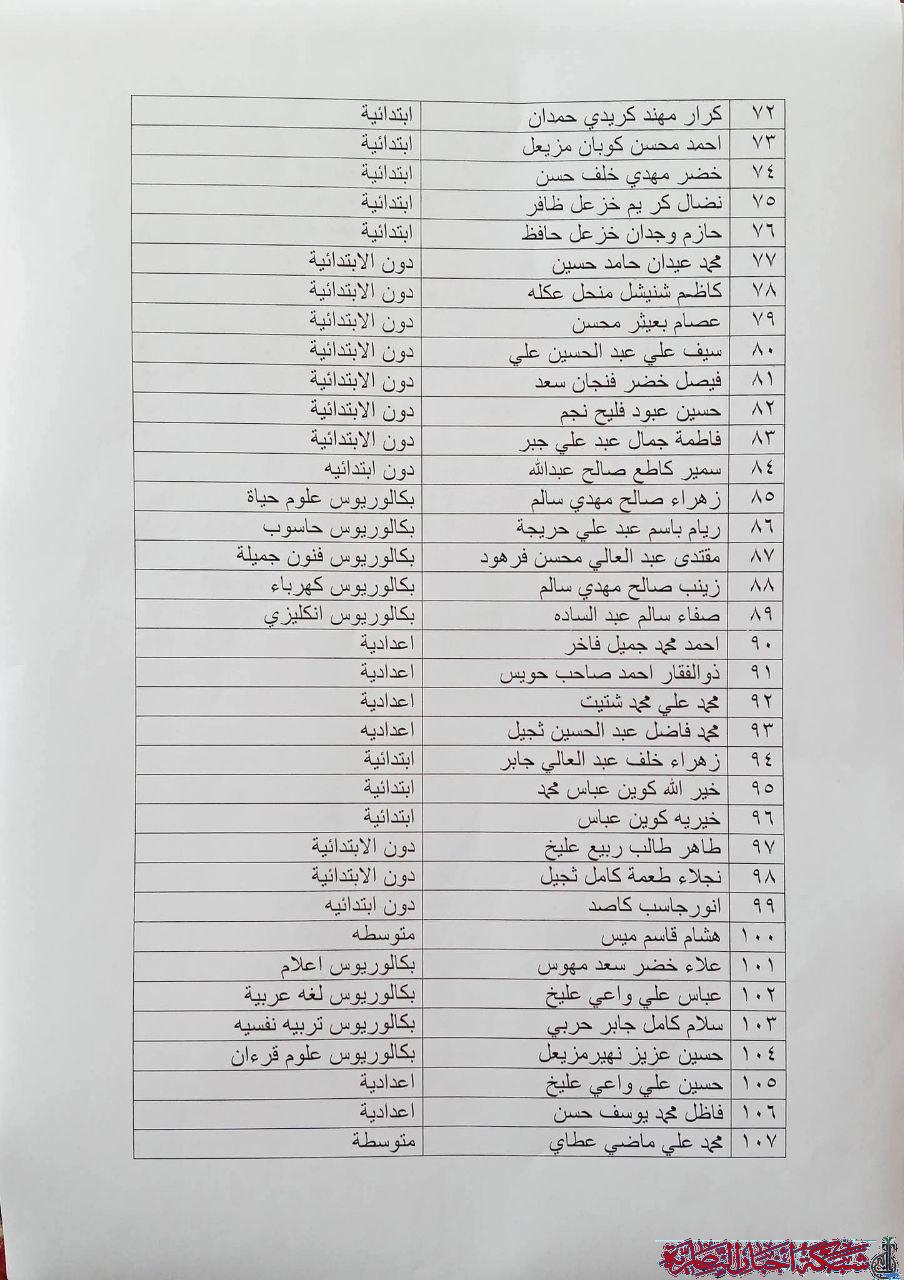 ٧٢ كرار مهند كريدي حمدان ابتدائية
٧٣ احمد محسن كوبان مزيعل ابتدائية
٧٤ خضر مهدي خلف حسن ابتدائية
٧٥ نضال كر يم خزعل ظافر ابتدائية
٧٦ حازم وجدان خزعل حافظ ابتدائية
٧٧ محمد عيدان حامد حسين دون الابتدائية
٧٨ كاظم شنيشل منحل عكله دون الابتدائية
٧٩ عصام بعيثر محسن دون الابتدائية
٨٠ سيف علي عبد الحسين علي دون الابتدائية
٨١ فيصل خضر فنجان سعد دون الابتدائية
٨٢ حسين عبود فليح نجم دون الابتدائية
٨٣ فاطمة جمال عبد علي جبر دون الابتدائية
٨٤ سمير كاطع صالح عبدالله دون ابتدائيه
٨٥ زهراء صالح مهدي سالم بكالوريوس علوم حياة
٨٦ ريام باسم عبد علي حريجة بكالوريوس حاسوب
٨٧ مقتدى عبد العالي محسن فرهود بكالوريوس فنون جميلة
٨٨ زينب صالح مهدي سالم بكالوريوس كهرباء
٨٩ صفاء سالم عبد الساده بكالوريوس انكليزي
٩٠ احمد محمد جميل فاخر اعدادية
٩١ ذوالفقار احمد صاحب حويس اعدادية
٩٢ محمد علي محمد شتيت اعدادية
٩٣ محمد فاضل عبد الحسين ثجيل اعداديه
٩٤ زهراء خلف عبد العالي جابر ابتدائية
٩٥ خير الله كوين عباس محمد ابتدائية
٩٦ خيريه كوين عباس ابتدائية
٩٧ طاهر طالب ربيع عليخ دون الابتدائية
٩٨ نجلاء طعمة كامل ثجيل دون الابتدائية
٩٩ انورجاسب كاصد دون ابتدائيه
١٠٠ هشام قاسم ميس متوسطه
١٠١ علاء خضر سعد مهوس بكالوريوس اعلام
١٠٢ عباس علي واعي عليخ بكالوريوس لغه عربية
١٠٣ سلام كامل جابر حربي بكالوريوس تربيه نفسيه
١٠٤ حسين عزيز نهيرمزيعل بكالوريوس علوم قرءان
١٠٥ حسين علي واعي عليخ اعدادية
١٠٦ فاظل محمد يوسف حسن اعدادية
١٠٧ محمد علي ماضي عطاي متوسطة
شبكة اخبار الناصرية